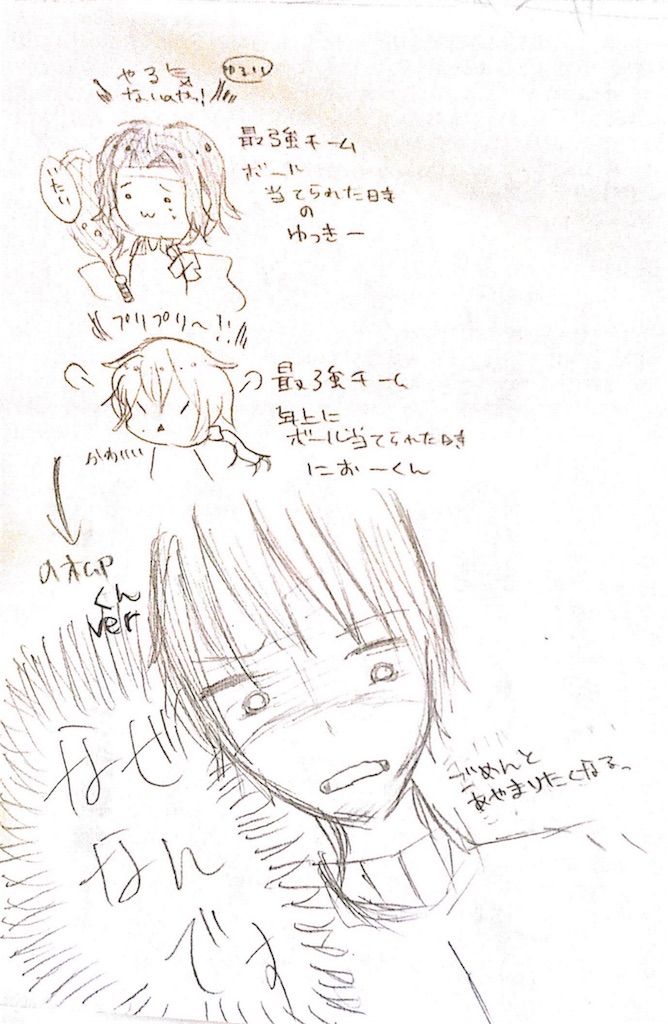 ゆるい
やる気
ないのやつ!
いたい
最強チーム
ボール
当てられた時
の
ゆっきー
プリプリ〜!!
最強チーム
年上に
ボール当てられた時
におーくん
かわいい
くん
ver
なぜ
なん
です
ごめんと
あやまりたくなるっ